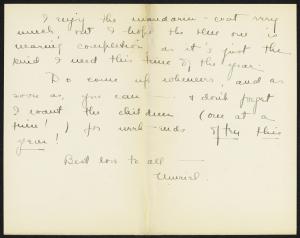 I enjoy the mandarin-coat very
much, but I hope the blue one is
nearing completion, as it's just the
kind I need this time of the year.
Do come up whenever, and as
soon as, you can — & don't forget
I want the children (one at a
time!) for week-ends often this
year!
Best love to all —
Muriel.